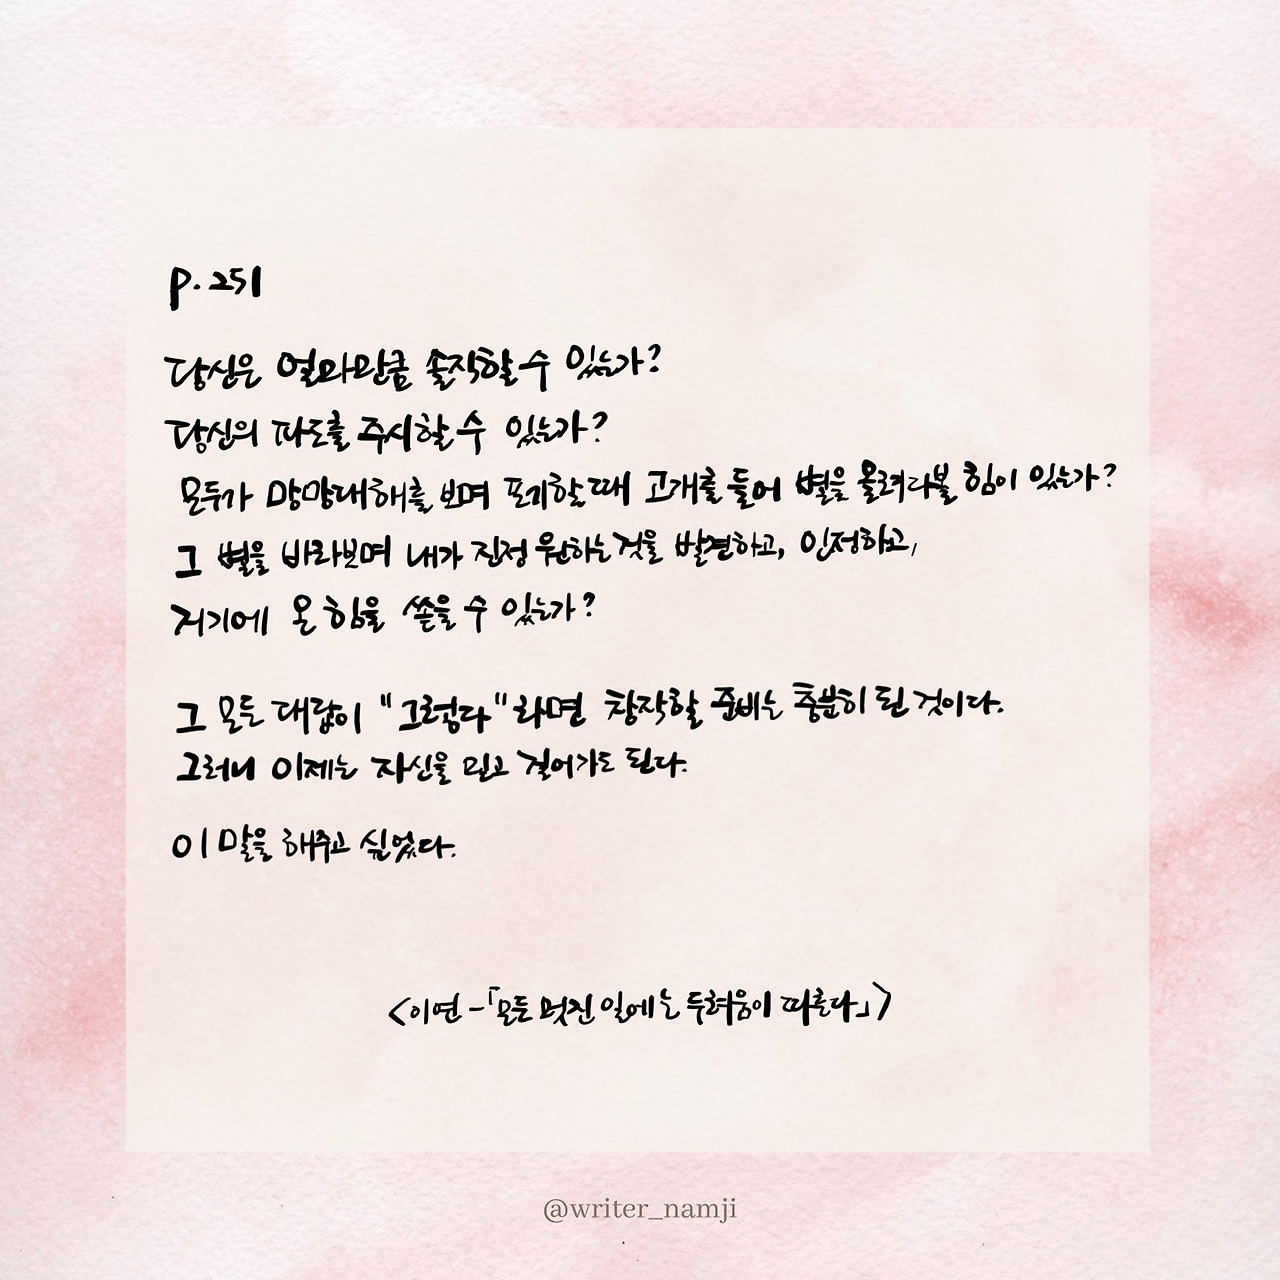 p. 251
당신은 얼마만큼 솔직할 수 있는가?
당신의 파도를 주시할 수 있는가?
모두가 망망대해를 보며 포기할 때 고개를 들어 별을 올려다볼 힘이 있는가?
그 별을 바라보며 내가 진정 원하는 것을 발견하고, 인정하고,
거기에 온 힘을 쏟을 수 있는가?
그 모든 대답이 "그렇다"라면 창작할 준비는 충분히 된 것이다.
그러니 이제는 자신을 믿고 걸어가도 된다.
이 말을 해주고 싶었다.
<이연 -「모든 멋진 일에는 두려움이 따른다」>
@writer_namji